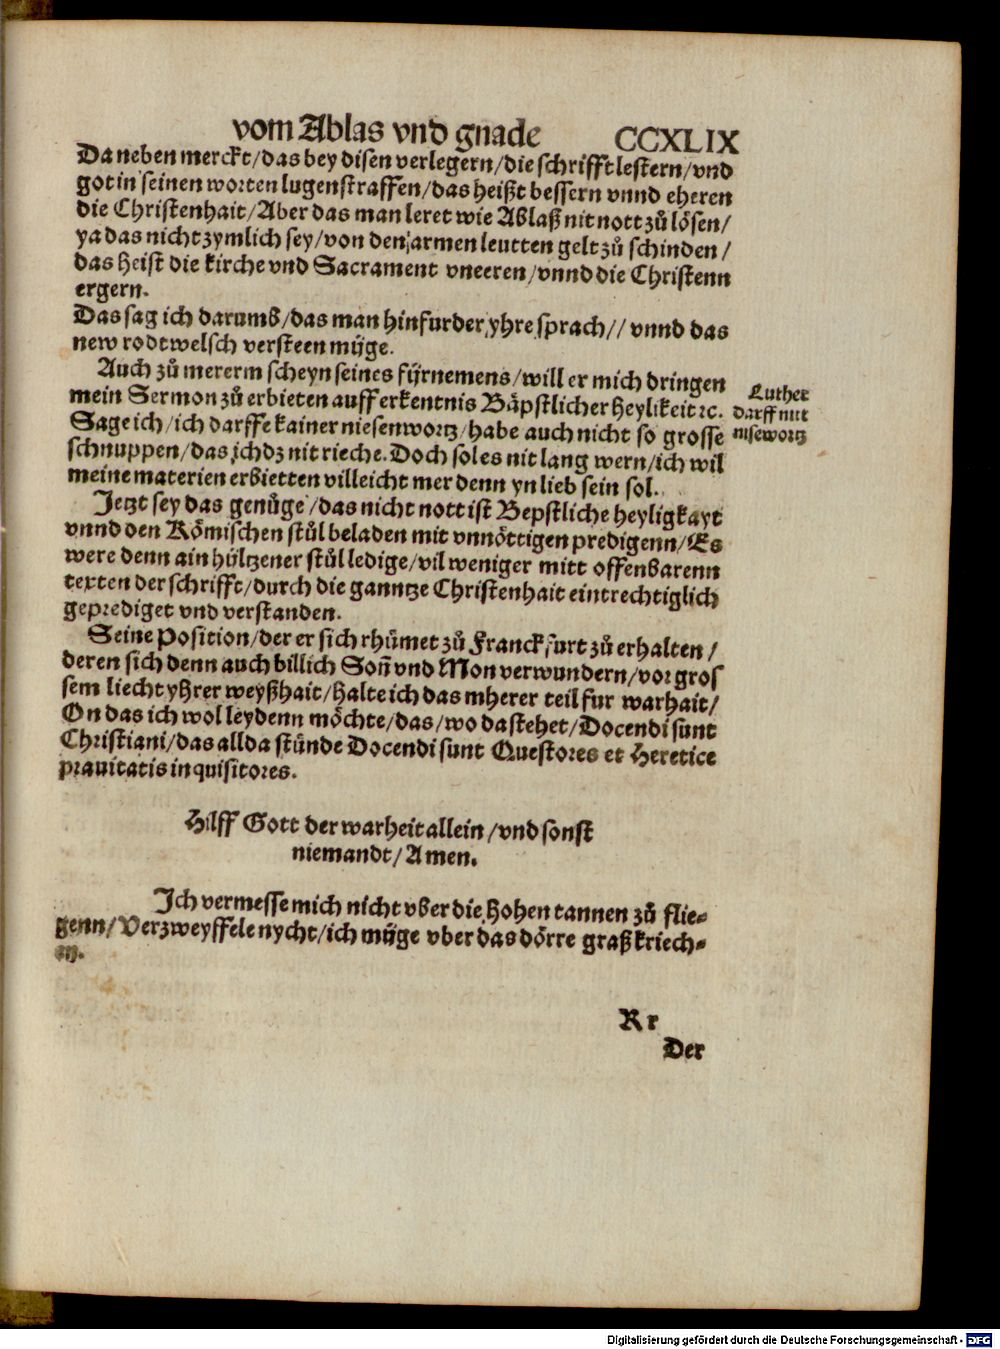 vom Ablas vnd gnade CCXLIX
Da neben merckt/das bey disen verlegern/die schrifft lestern/vnd
got in seinen worten lugenstraffen/das heißt bessern vnnd eheren
die Christenhait/Aber das man leret wie Ablaß nit nott zů lösen/
ya das nicht zymlich sey/von den armen leutten gelt zů schinden/
das heist die kirche vnd Sacrament vneeren/vnnd die Christenn
ergern.
Das sag ich darumb/das man hinfurder yhre sprach// vnnd das
new rodtwelsch versteen müge.
Auch zů mererm scheyn seines fürnemens/will er mich dringen
mein Sermon zů erbieten auff erkentnis Bäpstlicher heylikeit ⁊c.
Sage ich/ich darffe kainer niesenwortz/habe auch nicht so grosse
schnuppen/das ich dz nit rieche. Doch sol es nit lang wern/ich wil
meine materien erbietten villeicht mer denn yn lieb sein sol.
Luther
darff nit
nisewortz
Jetzt sey das genůge/das nicht nott ist Bepstliche heyligkayt
vnnd den Römischen stůl beladen mit vnnöttigen predigenn/Es
were denn ain hültzener stůl ledige/vil weniger mitt offenbarenn
texten der schrifft/durch die ganntze Christenhait eintrechtiglich
geprediget vnd verstanden.
Seine Position/der er sich rhümet zů Franckfurt zů erhalten/
deren sich denn auch billich Soñ vnd Mon verwundern/vor gros
sem liecht yhrer weyßhait/halte ich das mherer teil fur warhait/
On das ich wol leydenn möchte/das/wo da stehet/Docendi sunt
Christiani/das allda stünde Docendi sunt Questores et Heretice
prauitatis inquisitores.
Hilff Gott der warheit allein/vnd sonst
niemandt/Amen.
Ich vermesse mich nicht vber die hohen tannen zů flie⸗
genn/Verzweyffele nycht/ich müge vber das dörre graß kriech⸗
en.
Rr
Der
Digitalisierung gefördert durch die Deutsche Forschungsgemeinschaft - DFG